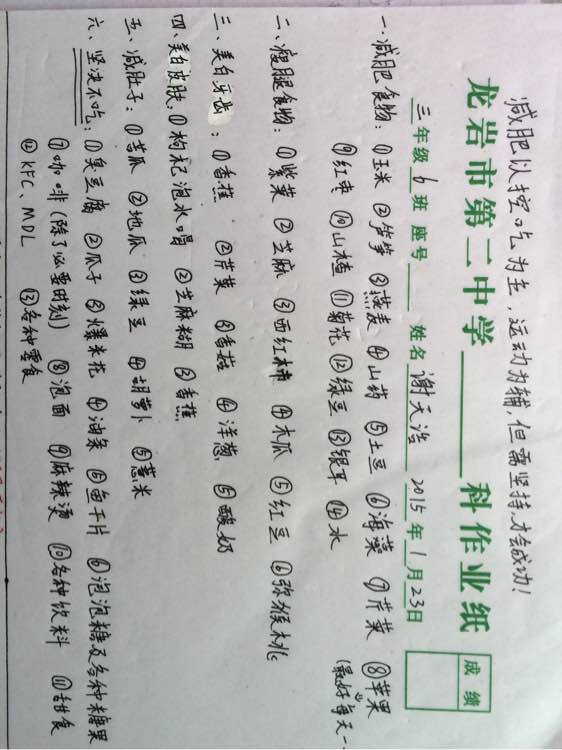 减肥以控吃为主，运动为辅，但需坚持，才会成功！
龙岩市第二中学 科作业纸 成绩
三年级 6 班 座号 姓名 谢天浩 2015 年 1 月 23 日
一.减肥食物：①玉米 ②竹笋 ③燕麦 ④山药 ⑤土豆 ⑥海藻 ⑦芹菜 ⑧苹果(最好每天一
⑨红枣 ⑩山楂 ⑪菊花 ⑫绿豆 ⑬银耳 ⑭水
二、瘦腿食物：①紫菜 ②芝麻 ③西红柿 ④木瓜 ⑤红豆 ⑥弥猴桃
三、美白牙齿：①香菇 ②芹菜 ③香菇 ④洋葱 ⑤酸奶
四、美白皮肤：①枸杞泡水喝 ②芝麻糊 ③香蕉
五、减肚子：①苦瓜 ②地瓜 ③绿豆 ④胡萝卜 ⑤薏米
六、坚决不吃：①臭豆腐 ②瓜子 ③爆米花 ④油条 ⑤鱼干片 ⑥泡泡糖及各种糖果
⑦咖啡(除了必要时刻) ⑧泡面 ⑨麻辣烫 ⑩各种饮料 ⑪甜食
⑫KFC、MDL ⑬各种零食